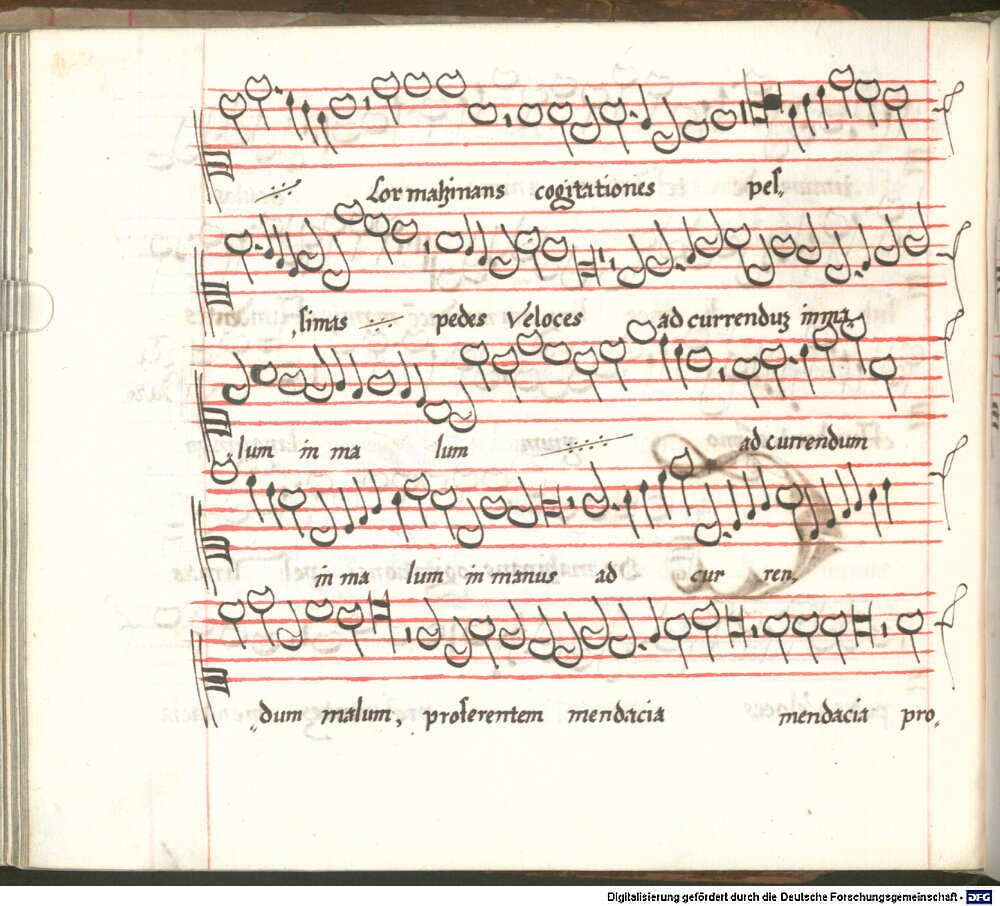 Cor mahinans cogitationes pes„
„simas pedes Veloces ad currenduz in ma„
„lum in ma lum ad currendum
in ma lum in manus ad cur ren„
„dum malum, proferentem mendacia mendacia pro„
Digitalisierung gefördert durch die Deutsche Forschungsgemeinschaft - DFG